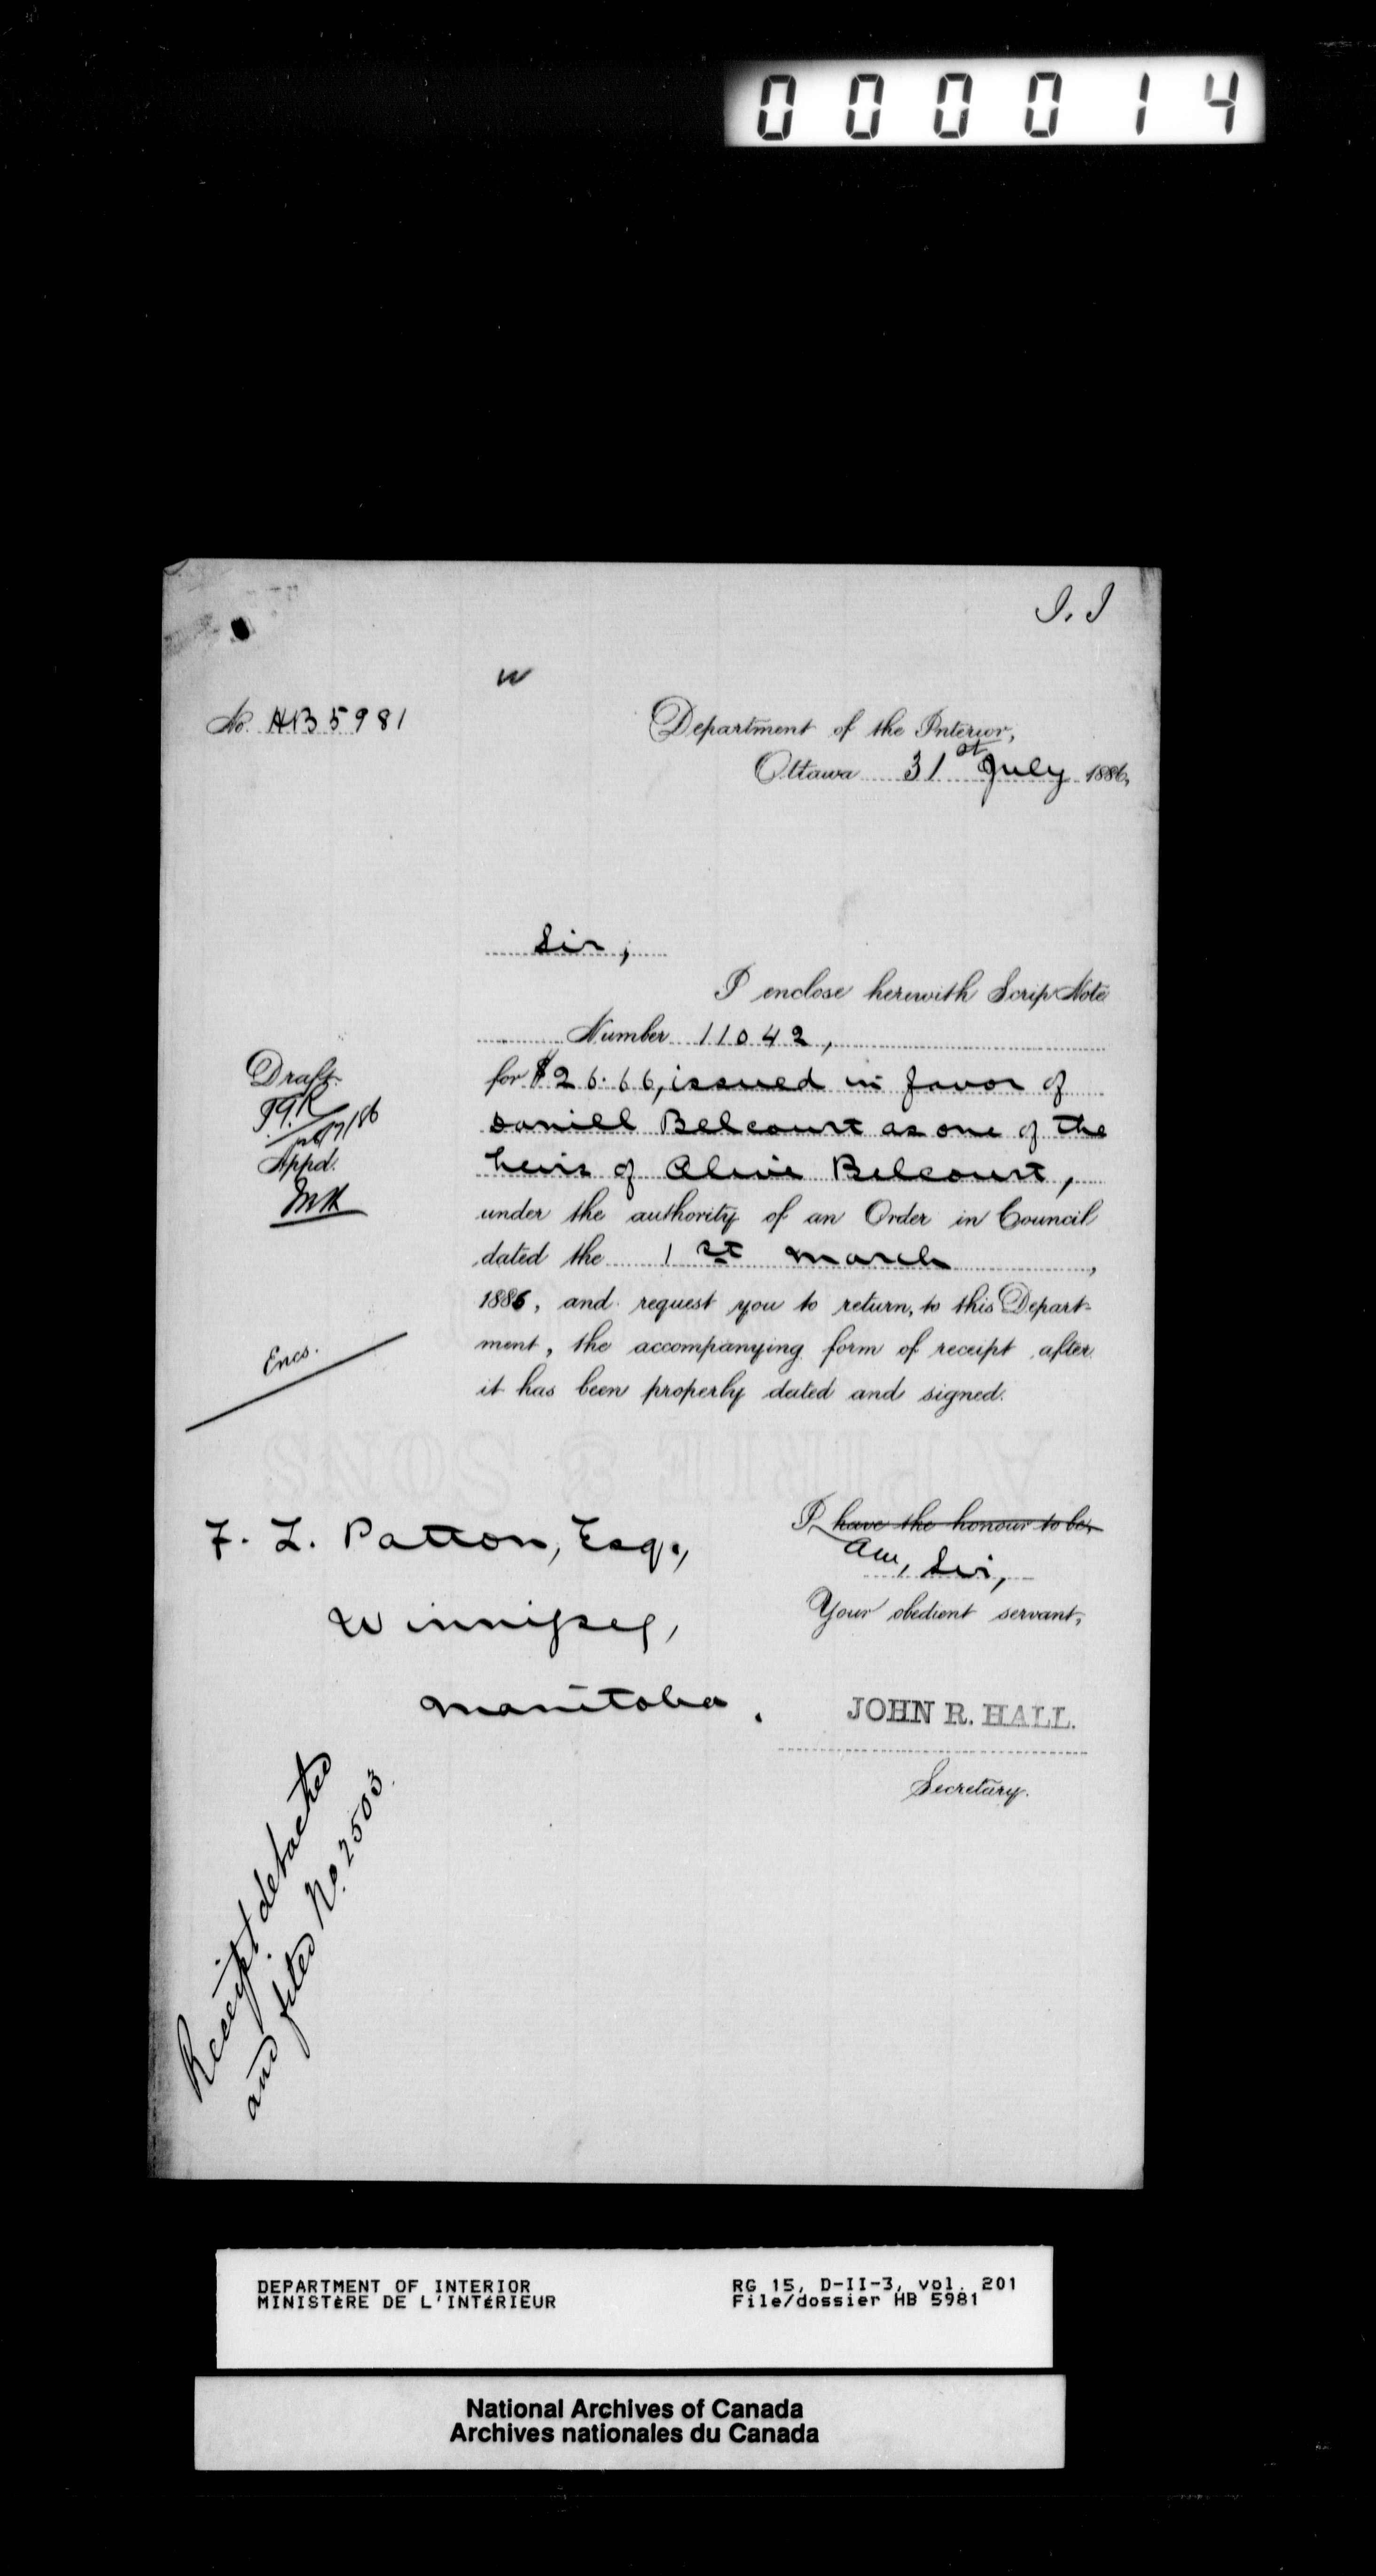 000014
J. J
w
No. HB 5981
Department of the Interior,
Ottawa 31st July 1886,
Sir,
I enclose herewith Scrip Note
Number 11042,
for $26.66, issued in favor of
Daniel Belcourt as one of the
heirs of Olivie Belcourt,
under the authority of an Order in Council
dated the 1st March,
1886, and request you to return, to this Depart-
ment, the accompanying form of receipt after
it has been properly dated and signed.
Draft.
Appd.
Encs.
I have the honour to be,
am, Sir,
Your obedient servant,
JOHN R. HALL.
Secretary.
F. L. Patton, Esq.,
Winnipeg,
Manitoba.
Receipt detached
and filed No. 2503.
DEPARTMENT OF INTERIOR
MINISTÈRE DE L'INTÉRIEUR
RG 15, D-II-3, vol. 201
File/dossier HB 5981
National Archives of Canada
Archives nationales du Canada